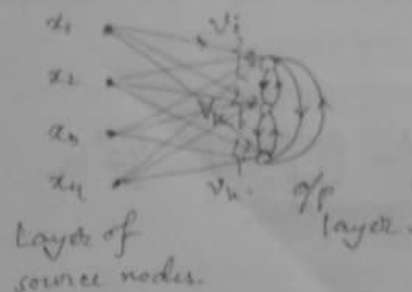 x₁
x₂
x₃
x₄
Vi
Vk
Vn
o/p
layer.
Layer of
source nodes.